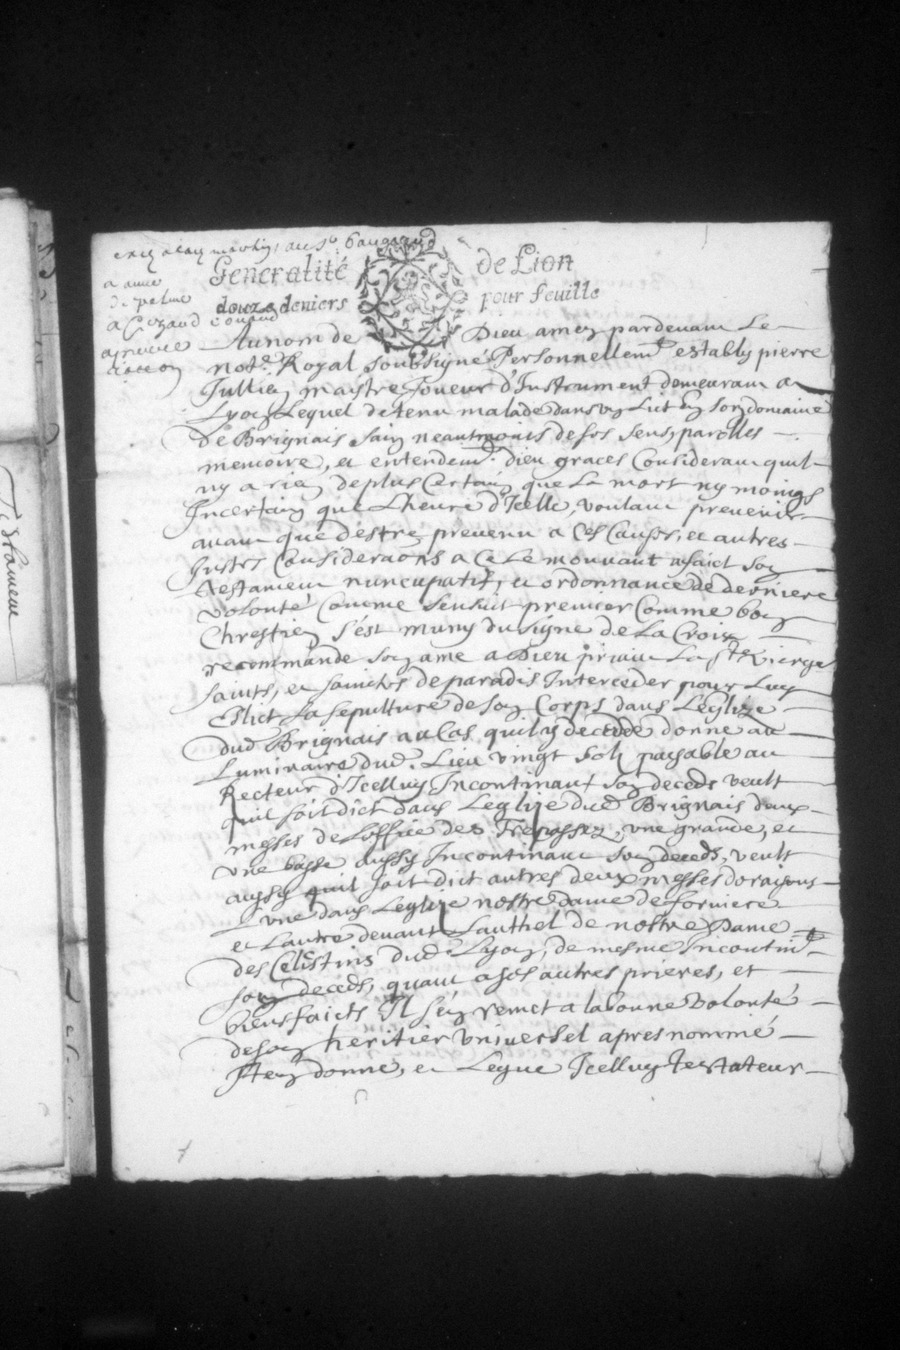 Generalité de Lion
douze deniers pour feuille
a anne
Au nom de Dieu amen pardevant Le
notre Royal soubsigné Personnellemt estably pierre
Jullien maistre Joueur d'Instrument demeurant a
Lyon Lequel detenu malade dans un Lict en son domaine
de Brignais sain neantmoins de ses sens, parolles
memoire, et entendemt. dieu graces Considerant quil
ny a rien de plus Certain que La mort ny moings
Incertain que L'heure d'Icelle, voulant prevenir
avant que destre prevenu a Ces Causes, et autres
Justes Consideraons a Ce Le mouvant a faict son
testament nuncupatif, et ordonnance de derniere
volonté Comme sensuit premier Comme bon
Chrestien s'est muny du signe de La Croix
recommande son ame a Dieu priant La Ste Vierge
saints, et sainctes de paradis Interceder pour Luy
Eslict sa sepulture de son Corps dans L'eglize
dud Brignais au Cas quil y decedde donne au
Luminaire dud. Lieu vingt sols payable au
Recteur d'Icelluy Incontinant son deceds veult
quil soit dict dans Leglize dud Brignais deux
messes de Loffice des Trepassez, une grande, et
une basse aussy Incontinant son deceds, veult
aussy quil soit dict autres deux messes doraisons
L'une dans Leglize nostre dame de forviere
et Lautre devant Lauthel de nostre Dame
des Celestins dud. Lyon, de mesme Incontint
son deceds, quant a ses autres prieres, et
bienfaicts Il s'en remet a la bonne volonté
de son heritier universel apres nommé
Item donne, et Legue Icelluy Testateur
Testament